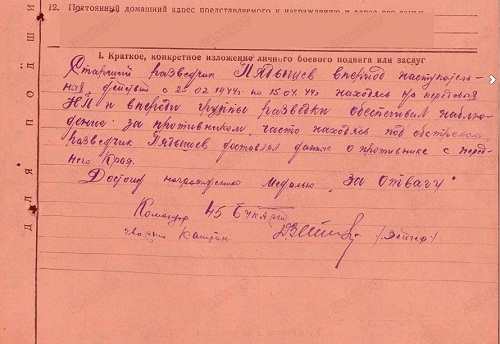 12. Постоянный домашний адрес представляемого к награждению и адрес его семьи
I. Краткое, конкретное изложение личного боевого подвига или заслуг
Старший разведчик Пятышев в период наступатель-
ных действий с 25.02.1944г по 15.04.44г находясь на передовых
НП и впереди группы разведки обеспечивал наблю-
дение: за противником, часто находясь под обстрелом
разведчик Пятышев доставлял данные о противнике с перед-
него края.
Достоин награждения медалью „За отвагу"
Командир 45
гвардии Капитан
ДЛЯ ПОДШИ